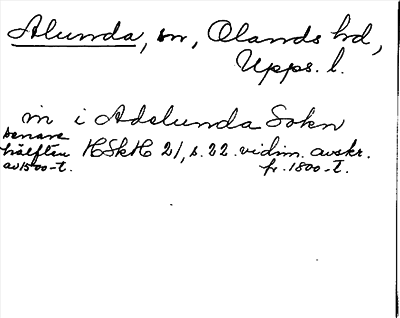 Alunda, sn, Olands hd,
Upps. l.
in i Adelunda Sokn
senare
hälften HSkH 21, s. 22. vidim. avskr.
av 1500-t. fr. 1800-t.